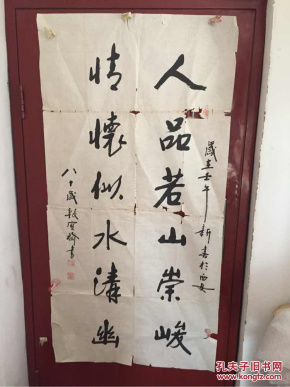 人品若山崇峻
情怀似水清幽
岁在壬午新春于西安
八十岁
孔夫子旧书网